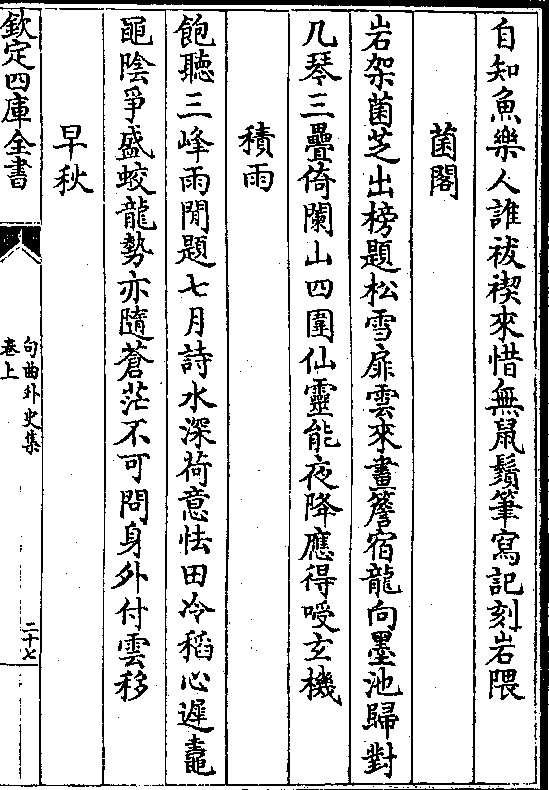 自知魚樂人誰祓禊來惜無鼠鬚筆寫記刻岩隈
菌閣
岩架菌芝出榜題松雪扉雲來晝簷宿龍向墨池歸對
几琴三疊倚闌山四圍仙靈能夜降應得受玄機
積雨
飽聽三峰雨閒題七月詩水深荷意怯田冷稻心遲鼃
黽陰爭盛蛟龍勢亦隨蒼茫不可問身外付雲移
早秋
欽定四庫全書
句曲外史集
卷上
二十七